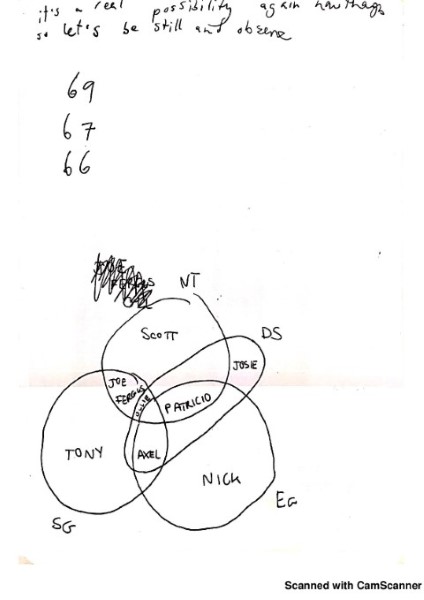 it's a real possibility again
so let's be still and observe
69
67
66
NT
SCOTT
DS
JOSIE
JOE
FERGUS
PATRICIO
TONY
AXEL
NICK
EG
SG
Scanned with CamScanner